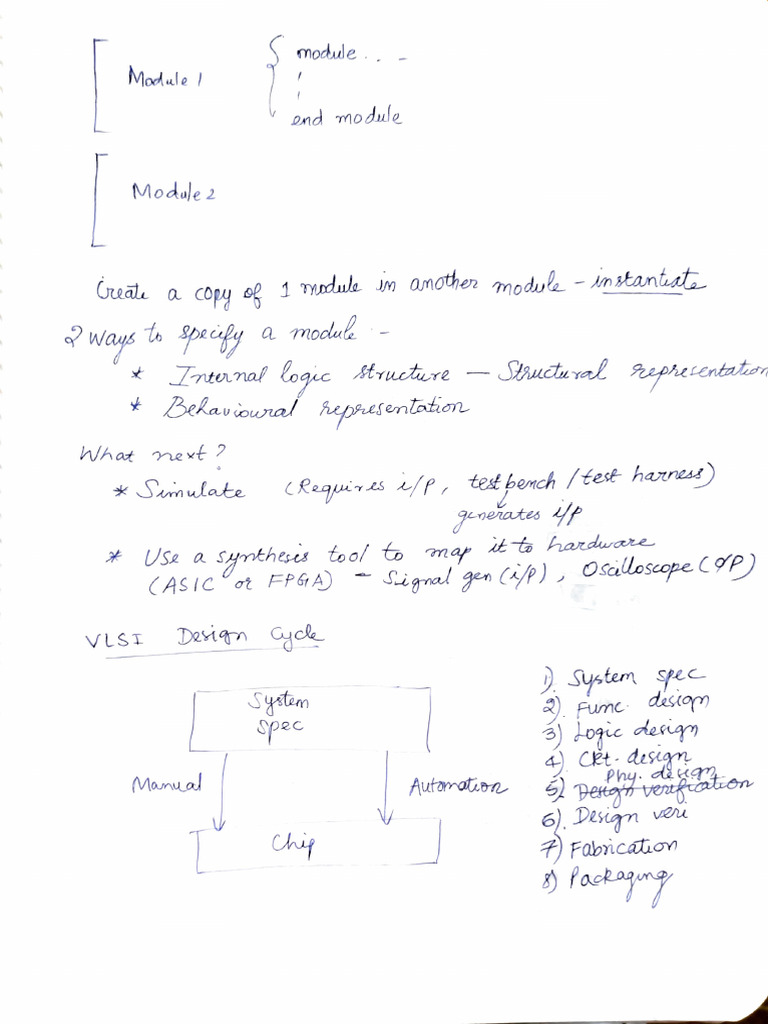 Module 1
module . . . -
end module
Module 2
Create a copy of 1 module in another module - instantiate
2 ways to specify a module -
* Internal logic structure — Structural representation
* Behavioural representation
What next?
* Simulate (Requires i/p, test bench / test harness)
generates i/p
* Use a synthesis tool to map it to hardware
(ASIC or FPGA) - Signal gen (i/p), Oscilloscope (O/P)
VLSI Design Cycle
System
spec
Manual
Automation
Chip
1) System spec
2) Func. design
3) Logic design
4) Ckt. design
Phy. design
5) Design verification
6) Design veri
7) Fabrication
8) Packaging